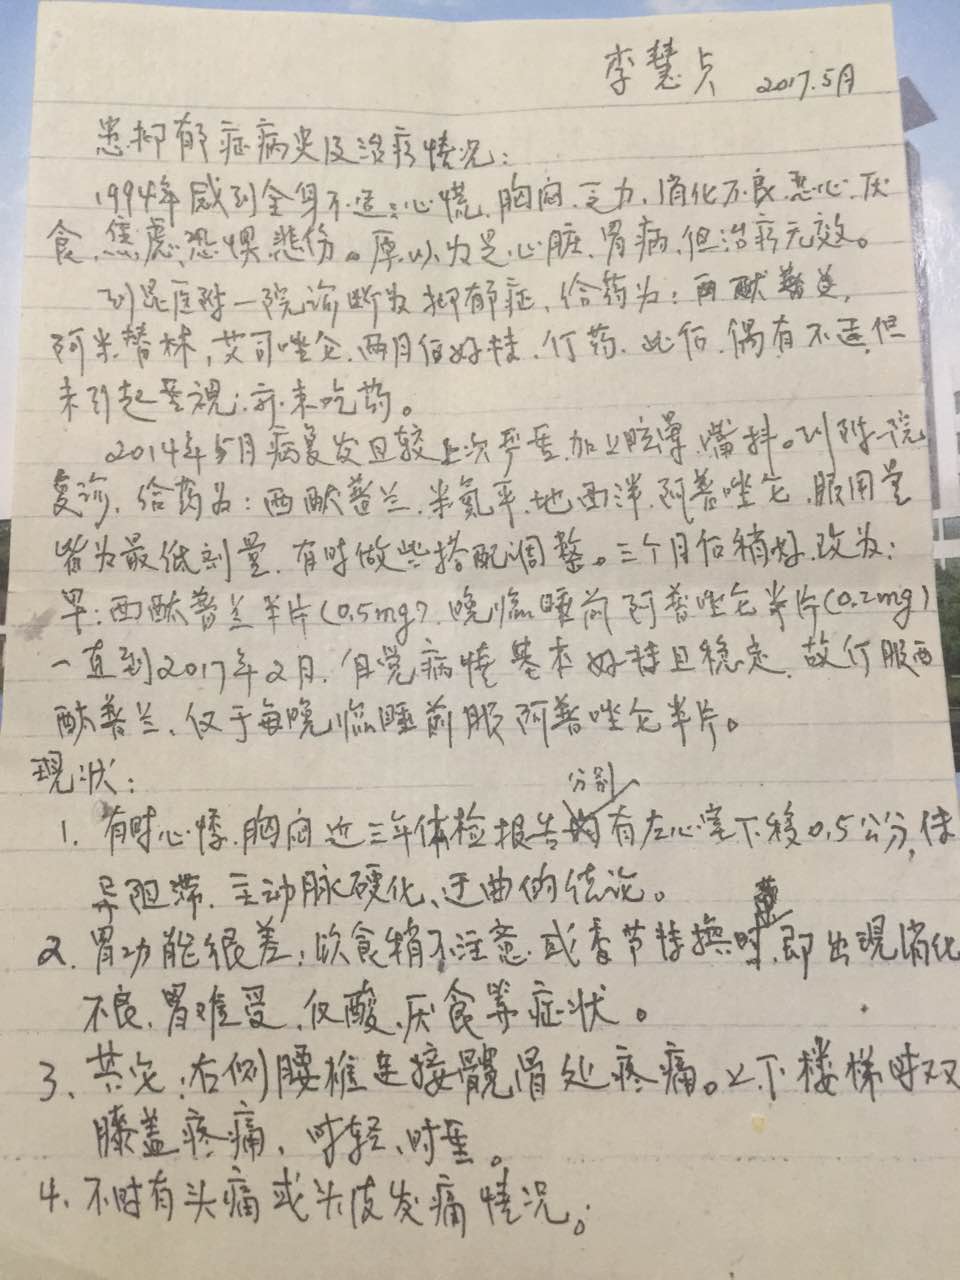 李慧贞 2017.5月
患抑郁症病史及治疗情况：
1994年感到全身不适：心慌、胸闷、乏力、消化不良、恶心、厌
食、焦虑、恐惧、悲伤。原以为是心脏、胃病，但治疗无效。
到昆医附一院诊断为抑郁症，给药为：西酞普兰，
阿米替林，艾司唑仑，两月后好转，停药，此后，偶有不适，但
未引起重视，亦未吃药。
2014年5月病复发且较上次严重，加上眩晕、嘴抖。到附一院
复诊，给药为：西酞普兰、米氮平、地西泮、阿普唑仑，服用量
皆为最低剂量，有时做些搭配调整。三个月后稍好，改为：
早：西酞普兰半片(0.5mg)，晚临睡前阿普唑仑半片(0.2mg)
一直到2017年2月，自觉病情基本好转且稳定，故停服西
酞普兰，仅于每晚临睡前服阿普唑仑半片。
现状：
1. 有时心悸、胸闷，近三年体检报告分别有左心室下移0.5公分，传
导阻滞，主动脉硬化、迂曲的结论。
2. 胃功能很差，饮食稍不注意，或季节转换时，即出现消化
不良、胃难受、反酸、厌食等症状。
3、其它：右侧腰椎连接髋骨处疼痛。上下楼梯时双
膝盖疼痛，时轻、时重。
4、不时有头痛或头皮发痛情况。